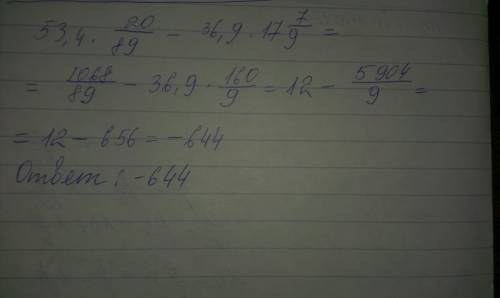 53,4 · 20/89 − 36,9 · 17 7/9 =
= 1068/89 − 36,9 · 160/9 = 12 − 5904/9 =
= 12 − 656 = −644
Ответ: −644